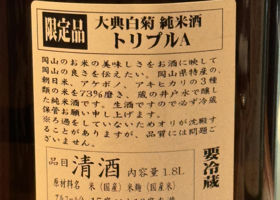 限定品
大典白菊 純米酒
トリプルA
岡山のお米の美味しさをお酒に映して
岡山の良さを伝えたい。岡山県特産の、
朝日米、アケボノ、アキヒカリの3種
類の米を73%磨き、蔵の井戸水で醸し
た純米酒です。生酒ですので必ず冷蔵
保管お願い申し上げます。
※ろ過をしていないためオリが沈殿す
ることがありますが、品質には問題ご
ざいません。
品目 清酒 内容量 1.8L
原材料名 米(国産) 米麹(国産米)
アルコール分 15度
要冷蔵